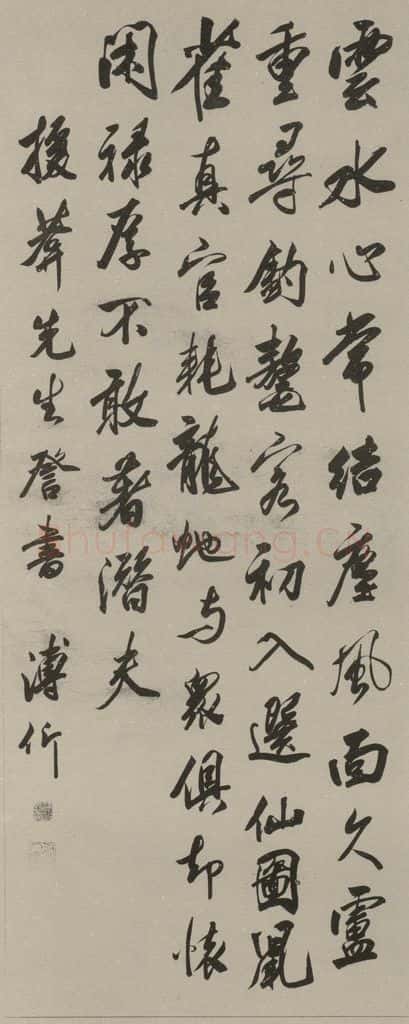 雲水心常結塵風面久盧
重尋釣鼇客初入選仙圖鼠
雀真官耗龍虵与衆俱却懐
閑禄厚不敢著潛夫
援葊先生詧書 溥伒
Shufawang.CN